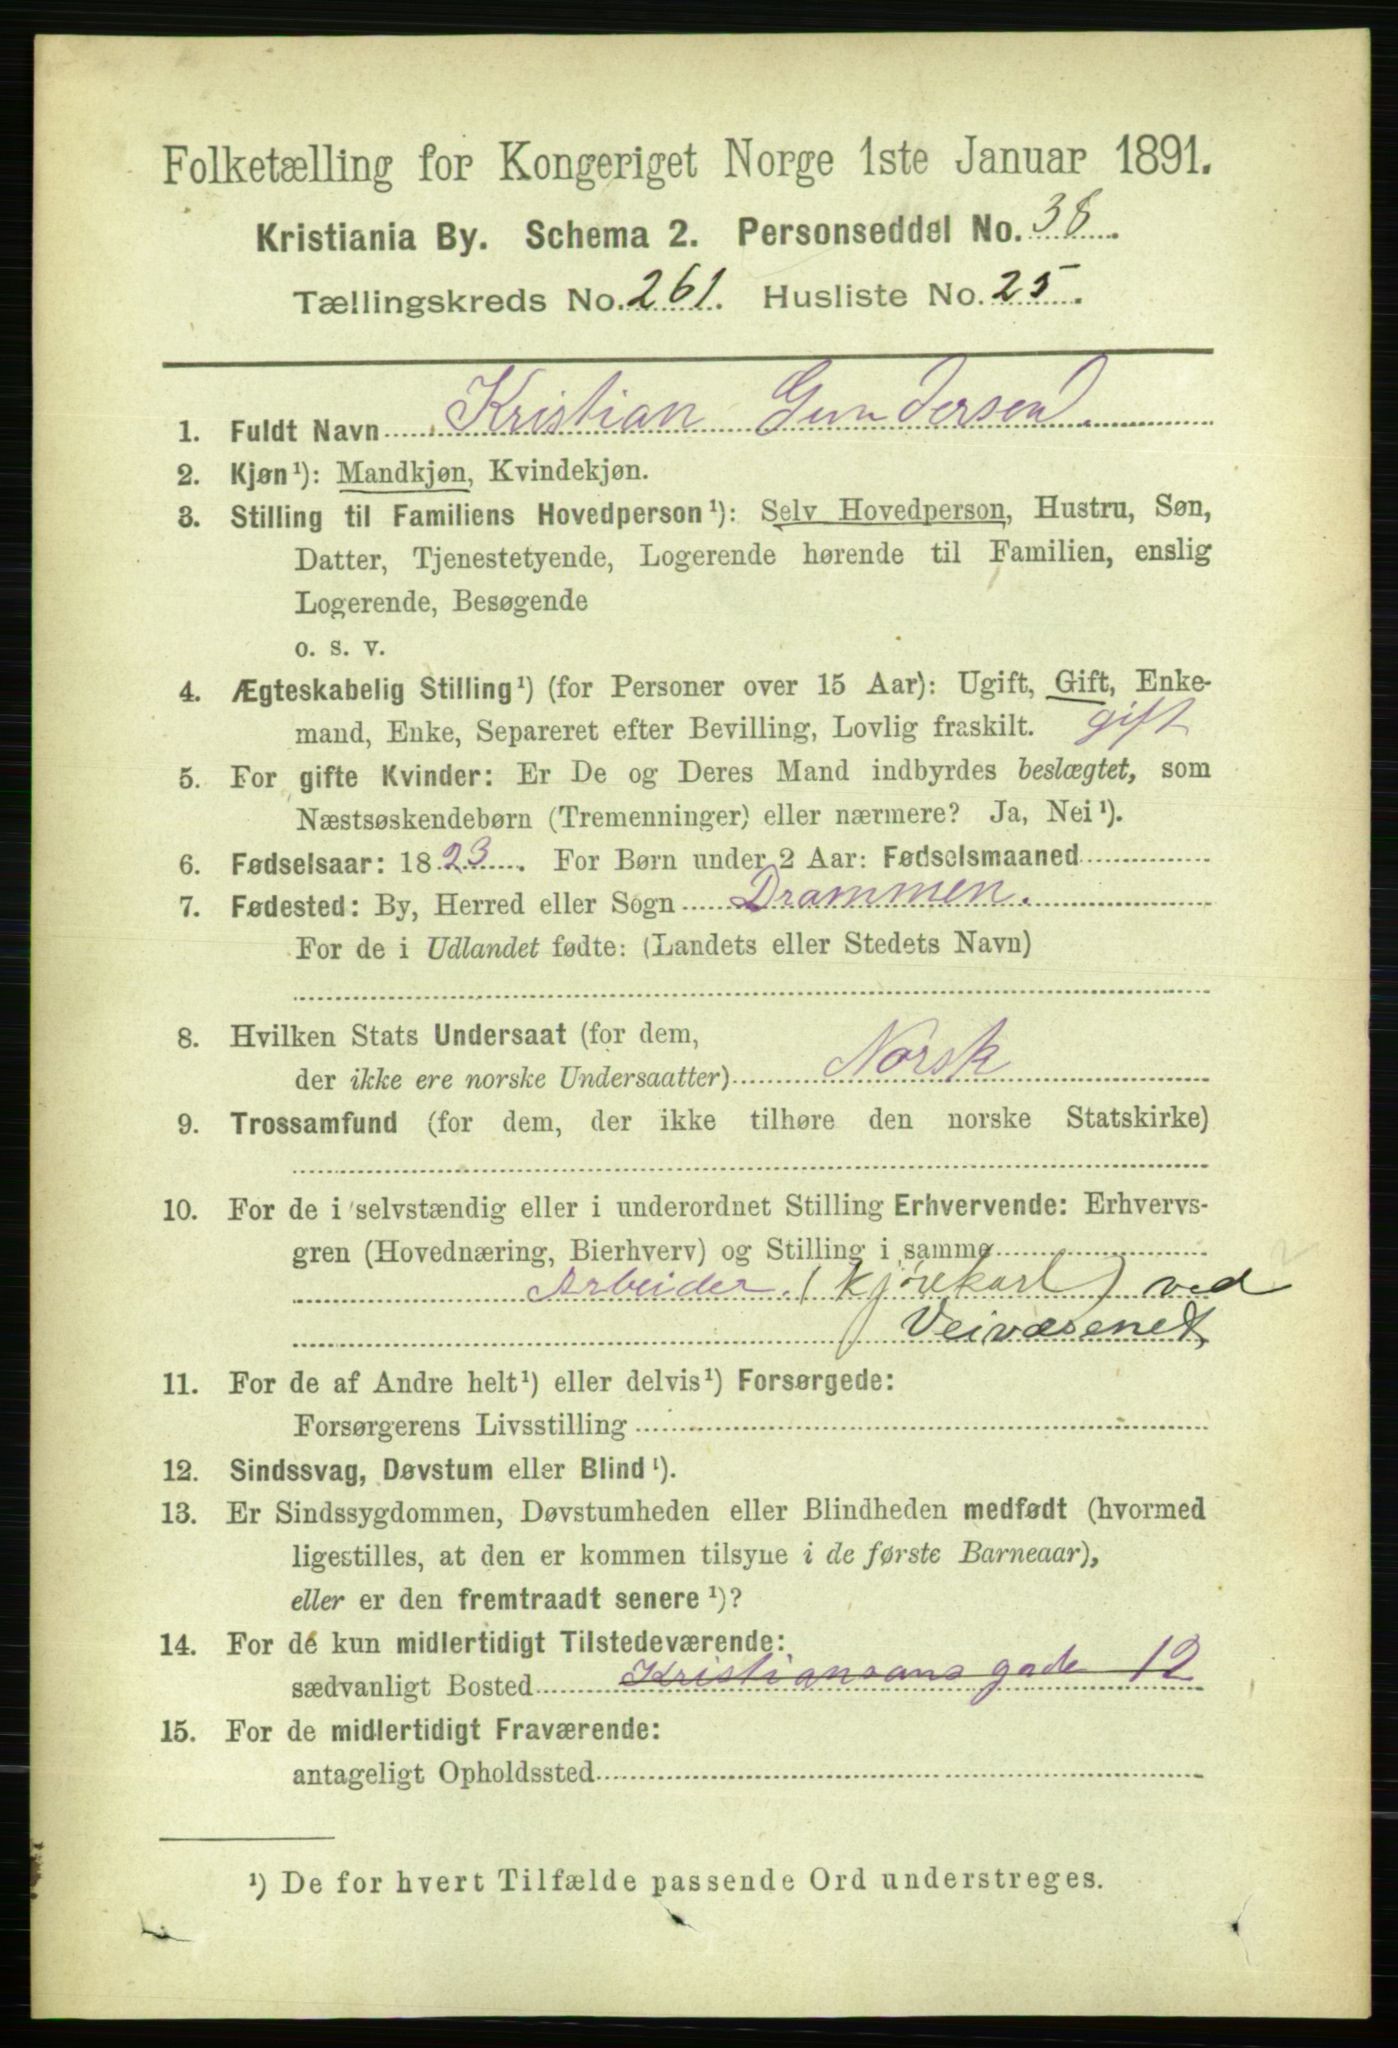 Folketælling for Kongeriget Norge 1ste Januar 1891.
Kristiania By. Schema 2. Personseddel No. 38.
Tællingskreds No. 261. Husliste No. 25.
1. Fuldt Navn Kristian Gundersen
2. Kjøn¹): Mandkjøn, Kvindekjøn.
3. Stilling til Familiens Hovedperson¹): Selv Hovedperson, Hustru, Søn,
Datter, Tjenestetyende, Logerende hørende til Familien, enslig
Logerende, Besøgende
o. s. v.
4. Ægteskabelig Stilling¹) (for Personer over 15 Aar): Ugift, Gift, Enke-
mand, Enke, Separeret efter Bevilling, Lovlig fraskilt. gift
5. For gifte Kvinder: Er De og Deres Mand indbyrdes beslægtet, som
Næstsøskendebørn (Tremenninger) eller nærmere? Ja, Nei¹).
6. Fødselsaar: 1823. For Børn under 2 Aar: Fødselsmaaned
7. Fødested: By, Herred eller Sogn Drammen.
For de i Udlandet fødte: (Landets eller Stedets Navn)
8. Hvilken Stats Undersaat (for dem,
der ikke ere norske Undersaatter) Norsk
9. Trossamfund (for dem, der ikke tilhøre den norske Statskirke)
10. For de i selvstændig eller i underordnet Stilling Erhvervende: Erhvervs-
gren (Hovednæring, Bierhverv) og Stilling i samme
Arbeider. (Kjørekarl) ved
Veivæsenet
11. For de af Andre helt¹) eller delvis¹) Forsørgede:
Forsørgerens Livsstilling
12. Sindssvag, Døvstum eller Blind¹).
13. Er Sindssygdommen, Døvstumheden eller Blindheden medfødt (hvormed
ligestilles, at den er kommen tilsyne i de første Barneaar),
eller er den fremtraadt senere¹)?
14. For de kun midlertidigt Tilstedeværende:
sædvanligt Bosted Kristiansans gade 12
15. For de midlertidigt Fraværende:
antageligt Opholdssted
¹) De for hvert Tilfælde passende Ord understreges.